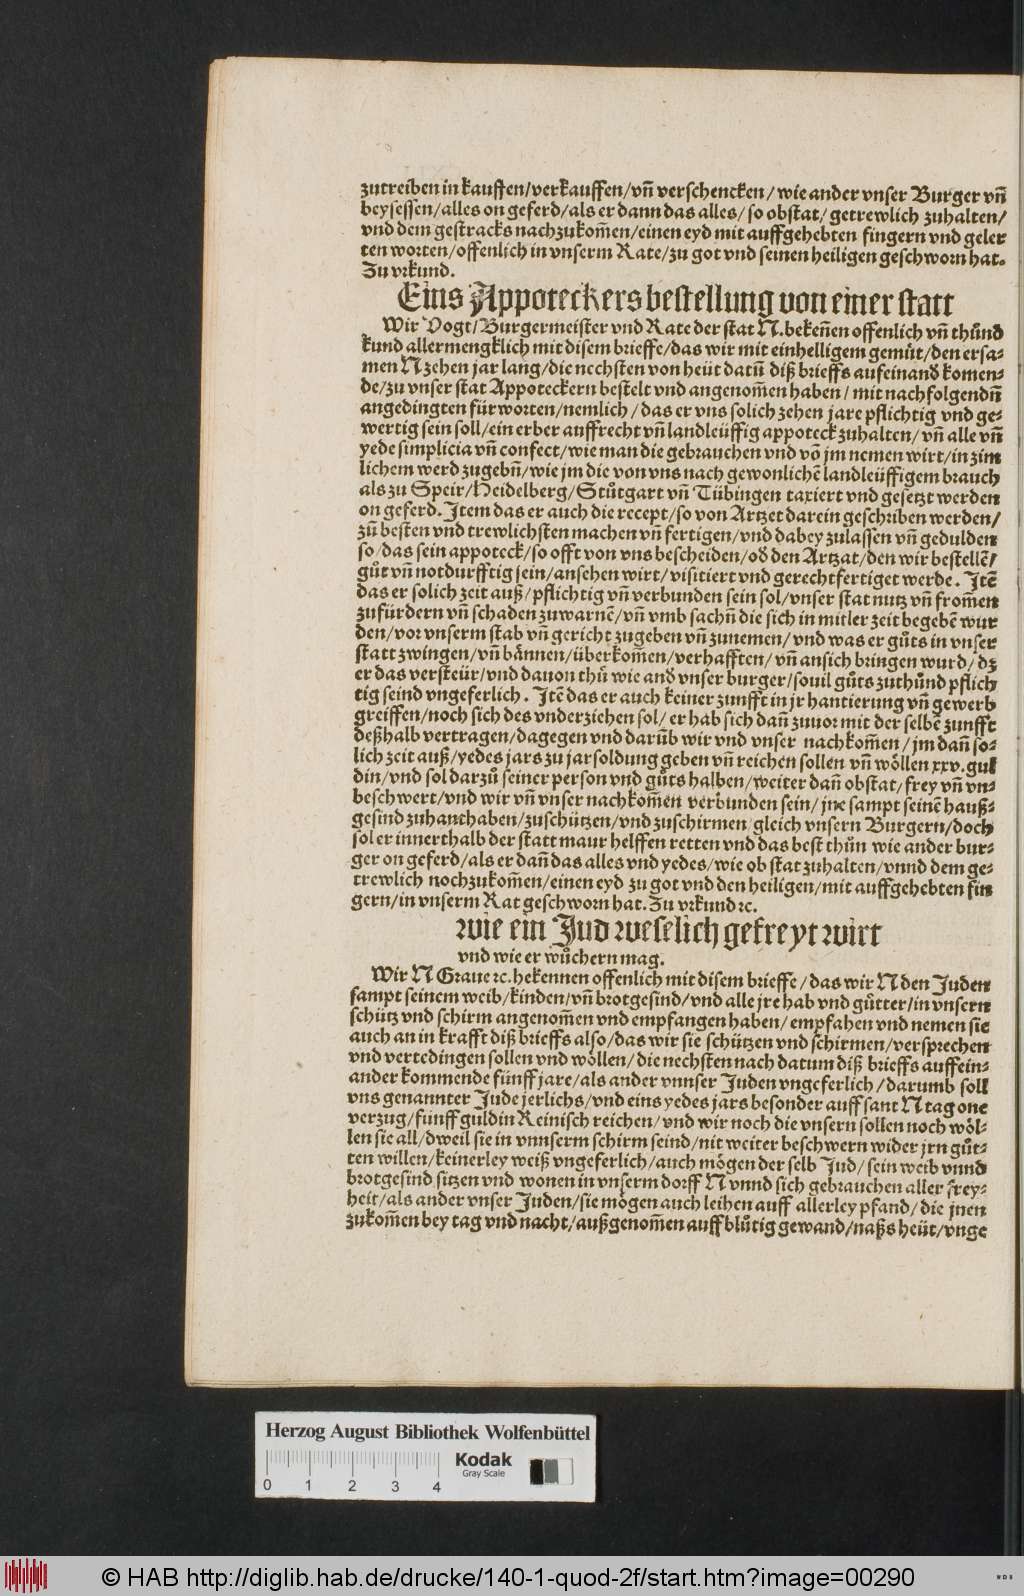 zutreiben in kauffen/verkauffen/vn̄ verschencken/ wie ander vnser Burger vn̄
beysessen/alles on geferd/als er dann das alles/ so obstat/ getrewlich zuhalten/
vnd dem gestracks nachzukom̄en/einen eyd mit auffgehebten fingern vnd geler
ten worten/offenlich in vnserm Rate/zu got vnd seinen heiligen geschworn hat.
Zu vrkund.
Eins Appoteckers bestellung von einer statt
Wir Vogt/Burgermeister vnd Rate der stat N. beken̄en offenlich vn̄ thůnd
kund allermengklich mit disem brieffe/das wir mit einhelligem gemüt/den ersa-
men N zehen jar lang/die nechsten von heüt datū diß brieffs aufeinand̕ komen-
de/zu vnser stat Appoteckern bestelt vnd angenom̄en haben/ mit nachfolgendn̄
angedingten fürworten/nemlich/das er vns solich zehen jare pflichtig vnd ge-
wertig sein soll/ein erber auffrecht vn̄ landleüffig appoteck zuhalten/ vn̄ alle vn̄
yede simplicia vn̄ confect/wie man die gebrauchen vnd vō jm nemen wirt/in zim
lichem werd zugebn̄/wie jm die von vns nach gewonlichē landleüffigem brauch
als zu Speir/Heidelberg/Stůtgart vn̄ Tübingen taxiert vnd gesetzt werden
on geferd. Item das er auch die recept/so von Artzet darein geschriben werden/
zū besten vnd trewlichsten machen vn̄ fertigen/vnd dabey zulassen vn̄ gedulden
so/das sein appoteck/so offt von vns bescheiden/od̕ den Artzat/den wir bestellē/
gůt vn̄ notdurfftig sein/ansehen wirt/visitiert vnd gerechtfertiget werde. Itē
das er solich zeit auß/pflichtig vn̄ verbunden sein sol/vnser stat nutz vn̄ from̄en
zufürdern vn̄ schaden zuwarnē/vn̄ vmb sachn̄ die sich in mitler zeit begebē wur
den/vor vnserm stab vn̄ gericht zugeben vn̄ zunemen/ vnd was er gůts in vnser
statt zwingen/vn̄ bännen/überkom̄en/verhafften/ vn̄ an sich bringen wurd/ dz
er das versteür/vnd dauon thů wie and̕ vnser burger/souil gůts zuthůnd pflich
tig seind vngeferlich. Itē das er auch keiner zunfft in jr hantierung vn̄ gewerb
greiffen/noch sich des vnderziehen sol/ er hab sich dan̄ zuuor mit der selbē zunfft
deßhalb vertragen/dagegen vnd darūb wir vnd vnser nachkom̄en/ jm dan̄ so-
lich zeit auß/yedes jars zu jarsoldung geben vn̄ reichen sollen vn̄ wöllen xxv. gul
din/vnd sol darzů seiner person vnd gůts halben/weiter dan̄ obstat/frey vn̄ vn-
beschwert/vnd wir vn̄ vnser nachkom̄en verbunden sein/ jne sampt seinē hauß-
gesind zuhanthaben/zuschützen/vnd zuschirmen gleich vnsern Burgern/doch
sol er innerthalb der statt maur helffen retten vnd das best thůn wie ander bur-
ger on geferd/als er dan̄ das alles vnd yedes/wie ob stat zuhalten/vnnd dem ge-
trewlich nochzukom̄en/einen eyd zu got vnd den heiligen/mit auffgehebten fin
gern/in vnserm Rat geschworn hat. Zu vrkund ꝛc.
wie ein Jud weselich gefreyt wirt
vnd wie er wůchern mag.
Wir N Graue ꝛc. bekennen offenlich mit disem brieffe/das wir N den Juden
sampt seinem weib/kinden/vn̄ brotgesind/vnd alle jre hab vnd gůtter/in vnsern
schütz vnd schirm angenom̄en vnd empfangen haben/ empfahen vnd nemen sie
auch an in krafft diß brieffs also/das wir sie schützen vnd schirmen/versprechen
vnd vertedingen sollen vnd wöllen/die nechsten nach datum diß brieffs auffein-
ander kommende fünff jare/als ander vnnser Juden vngeferlich/darumb soll
vns genannter Jude jerlichs/vnd eins yedes jars besonder auff sant N tag one
verzug/fünff guldin Reinisch reichen/ vnd wir noch die vnsern sollen noch wöl-
len sie all/dweil sie in vnnserm schirm seind/nit weiter beschwern wider jrn gůt-
ten willen/keinerley weiß vngeferlich/auch mögen der selb Jud/ sein weib vnnd
brotgesind sitzen vnd wonen in vnserm dorff N vnnd sich gebrauchen aller frey-
heit/als ander vnser Juden/sie mögen auch leihen auff allerley pfand/die jnen
zukom̄en bey tag vnd nacht/außgenom̄en auff blůtig gewand/naßs heüt/vnge
Herzog August Bibliothek Wolfenbüttel
Kodak
Gray Scale
0 1 2 3 4
© HAB http://diglib.hab.de/drucke/140-1-quod-2f/start.htm?image=00290